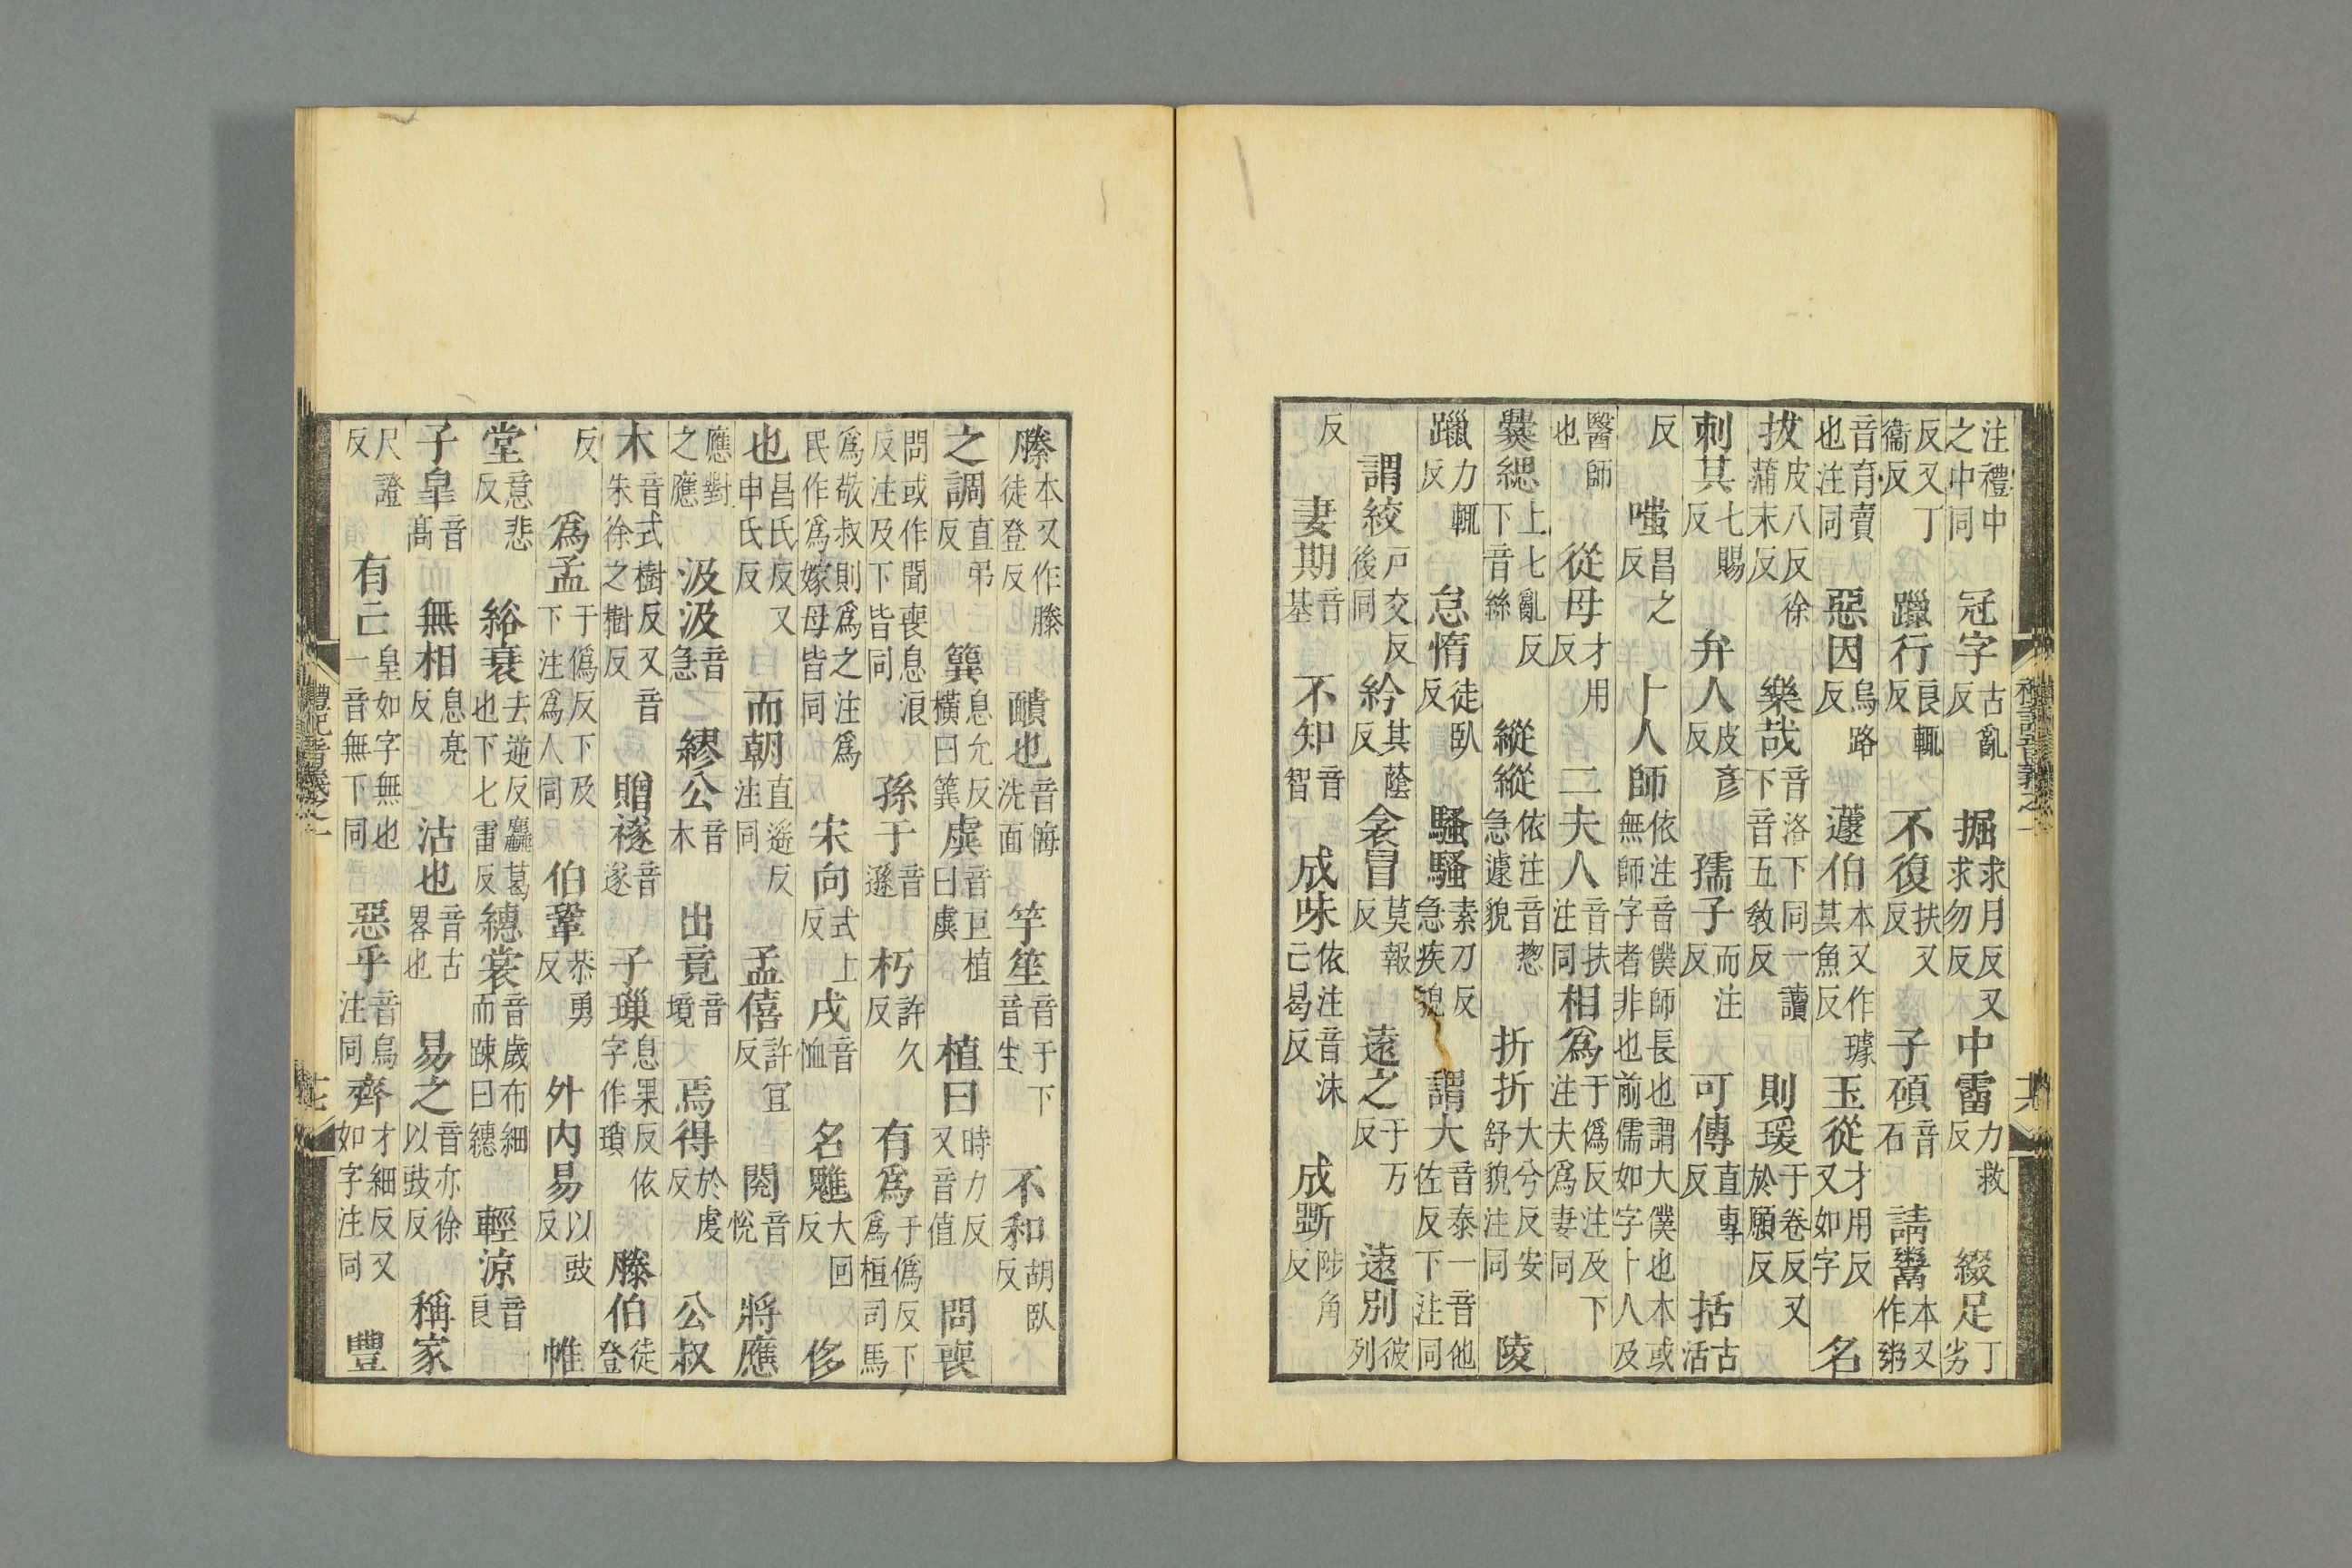 注禮中之中同冠字古亂反掘求月反又求勿反中霤力救反綴足丁劣
反又丁衞反躐行良輒反不復扶又反子碩音石請鬻本又作粥
音育賣也注同惡因烏路反蘧伯本又作璩其魚反玉從才用反又如字名
拔皮八反徐蒲末反樂哉音洛下同一讀下音五敎反則瑗于卷反又於願反
刺其七賜反弁人皮彥反孺子而注反可傳直專反括古活
反嗤昌之反卜人師依注音僕師長也謂大僕也本或無師字者非也前儒如字卜人及
醫師也從母才用反二夫人音扶注同相爲于僞反注及下注夫爲妻同
爨緦上七亂反下音絲縱縱依注音揔急遽貌折折大兮反安舒貌注同陵
躐力輒反怠惰徒臥反騷騷素刀反急疾貌謂大音泰一音他佐反下注同
謂絞戶交反後同紟其蔭反衾冒莫報反遠之于万反遠別彼列
反妻期音基不知音智成味依注音沬亡曷反成斲陟角反
禮記音義之一
六
縢本又作滕徒登反靧也音悔洗面竽笙音于下音生不和胡臥反
之調直弔反簨息允反橫曰簨虡音巨植曰虡植曰時力反又音值問喪
問或作聞喪息浪反注及下皆同孫于音遜朽許久反有爲于僞反下爲桓司馬
爲敬叔則爲之注爲民作爲嫁母皆同宋向式上反戌音恤名魋大回反侈
也昌氏反又申氏反而朝直遥反注同孟僖許宜反閱音悅將應
應對之應汲汲音急繆公音木出竟音境焉得於虔反公叔
木音式樹反又音朱徐之樹反贈襚音遂子璅息果反依字作瑣滕伯徒登
反爲孟于僞反下及下注爲人同伯鞏恭勇反外内易以豉反帷
堂意悲反綌衰去逆反麤葛也下七雷反繐裳音歲布細而疎曰繐輕涼音良
子臯音高無相息亮反沽也音古畧也易之音亦徐以豉反稱家
尺證反有亡皇如字無也一音無下同惡乎音烏注同齊才細反又如字注同豐
禮記音義之一
十七